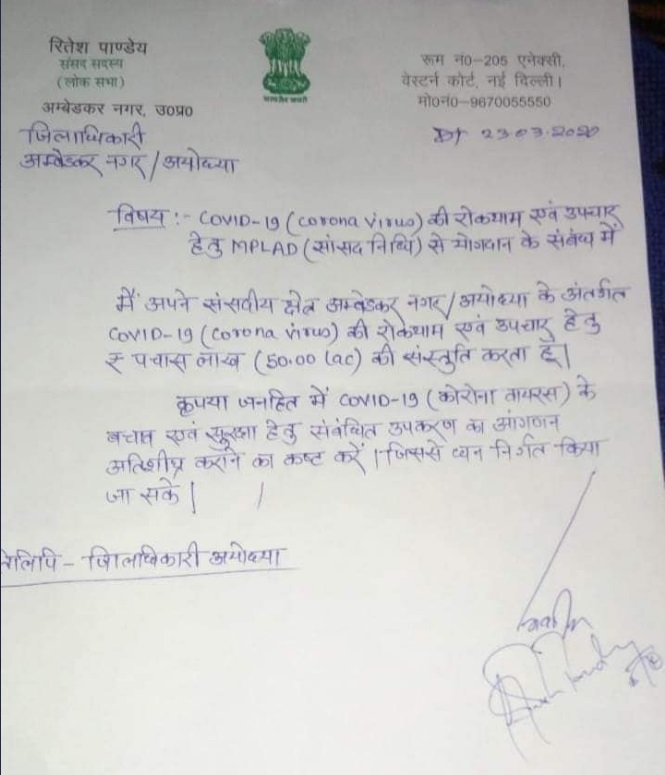 रितेश पाण्डेय
संसद सदस्य
(लोक सभा)
अम्बेडकर नगर, उ०प्र०
सत्यमेव जयते
रूम नं०-205 एनेक्सी,
वेस्टर्न कोर्ट, नई दिल्ली।
मो०नं०-9670055550
जिलाधिकारी
अम्बेडकर नगर/अयोध्या
Dt 23.03.2020
विषय :- COVID-19 (corona virus) की रोकथाम एवं उपचार
हेतु MPLAD (सांसद निधि) से योगदान के संबंध में
मैं अपने संसदीय क्षेत्र अम्बेडकर नगर/अयोध्या के अंतर्गत
COVID-19 (corona virus) की रोकथाम एवं उपचार हेतु
₹ पचास लाख (50.00 lac) की संस्तुति करता हूँ|
कृपया जनहित में COVID-19 (कोरोना वायरस) के
बचाव एवं सुरक्षा हेतु संबंधित उपकरण का आंगणन
अतिशीघ्र कराने का कष्ट करें। जिससे धन निर्गत किया
जा सके|
लिपि - जिलाधिकारी अयोध्या